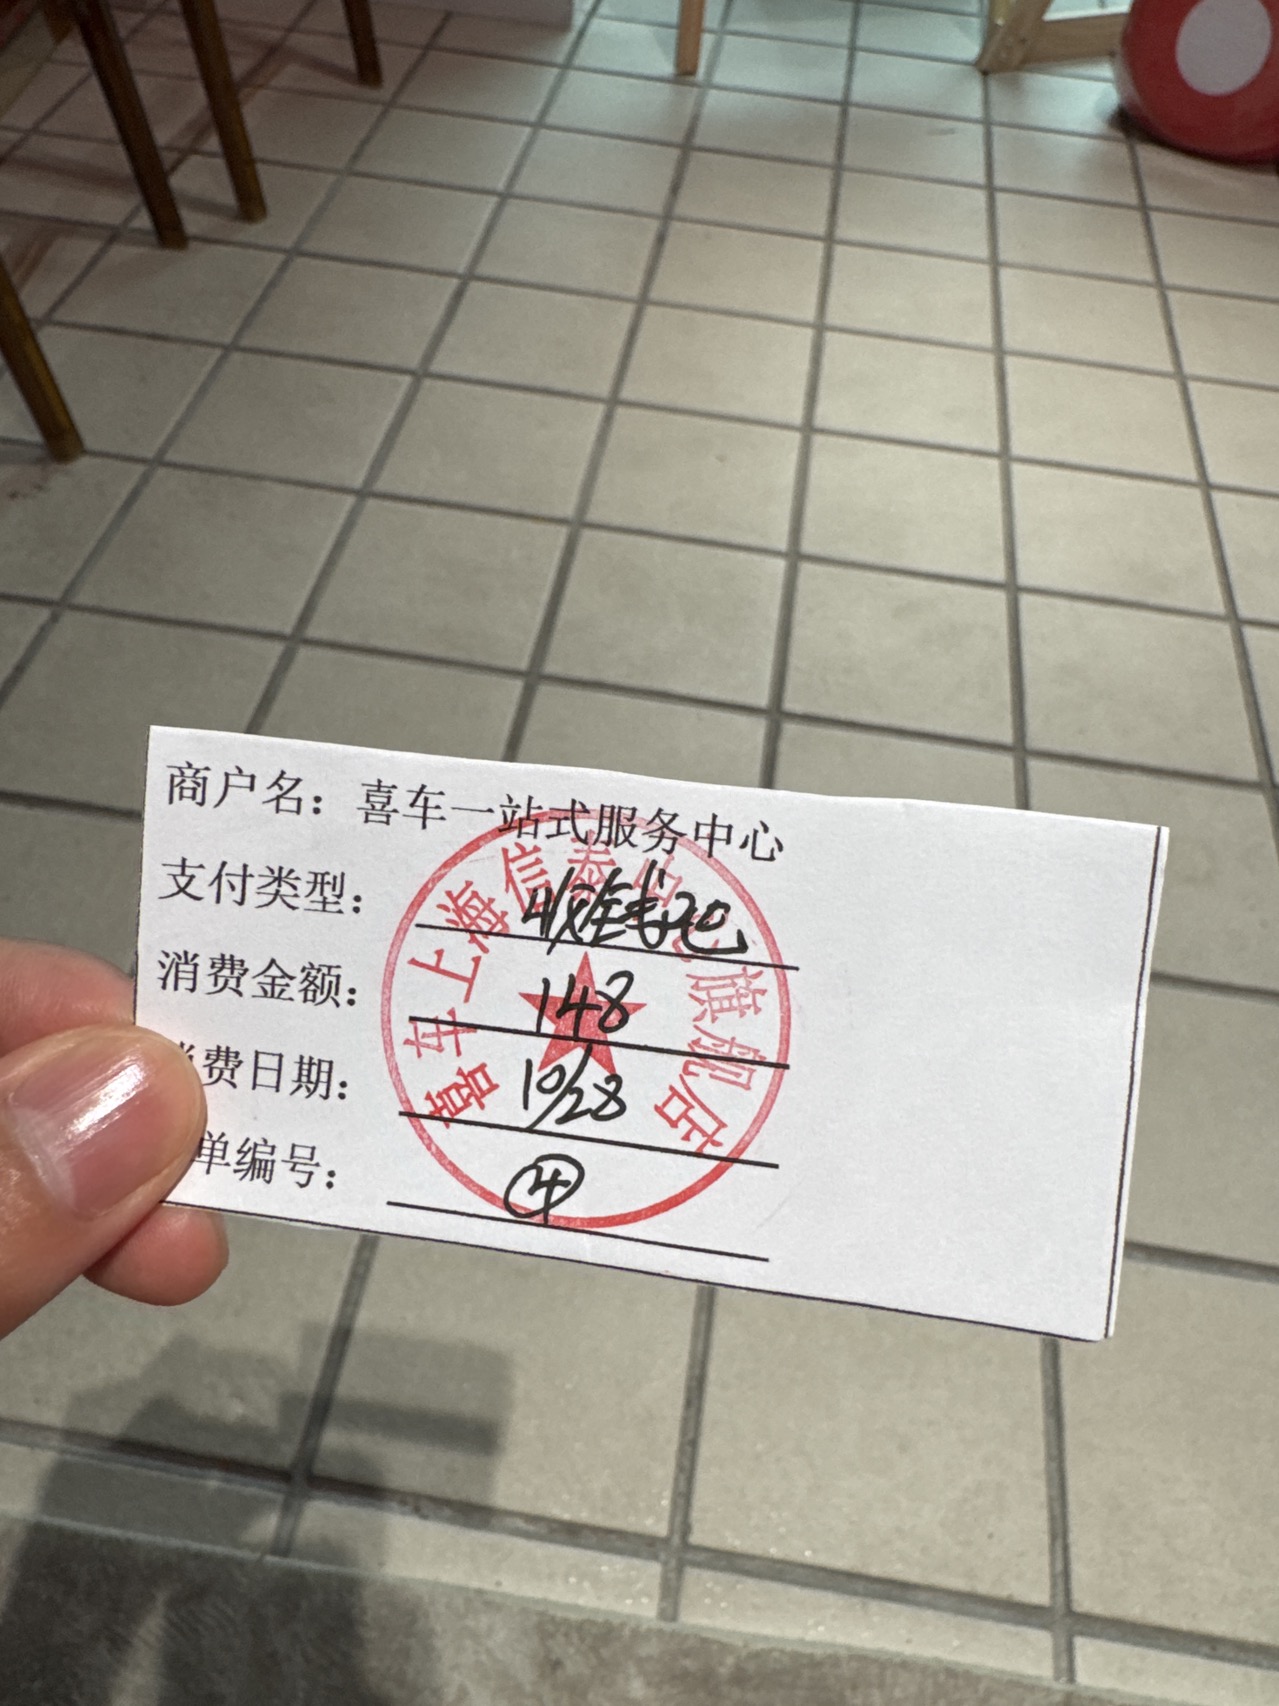 商户名：喜车一站式服务中心
支付类型：收钱吧
消费金额：148
消费日期：10/28
单编号：④
喜车上海信泰中心旗舰店